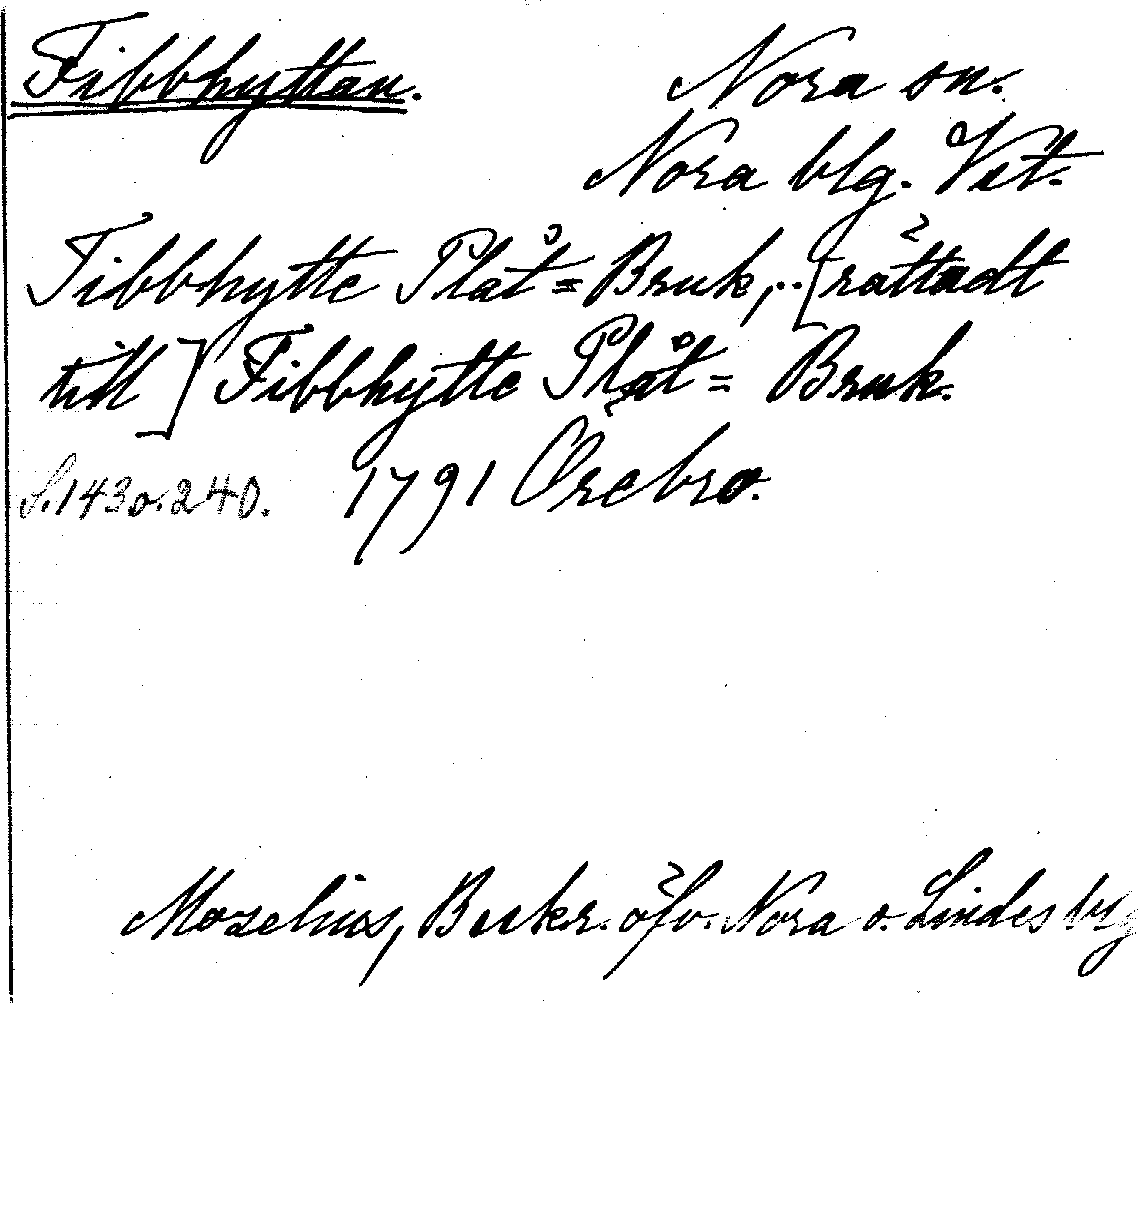 Fibbhyttan. Nora sn.
Nora blg. Vst.
Fibbhytte Plåt=Bruk, .. [rättadt
till] Fibbhytte Plåt= Bruk.
S. 143 o. 240. 1791 Örebro.
Moselius, Beskr. öfv. Nora o. Lindes by